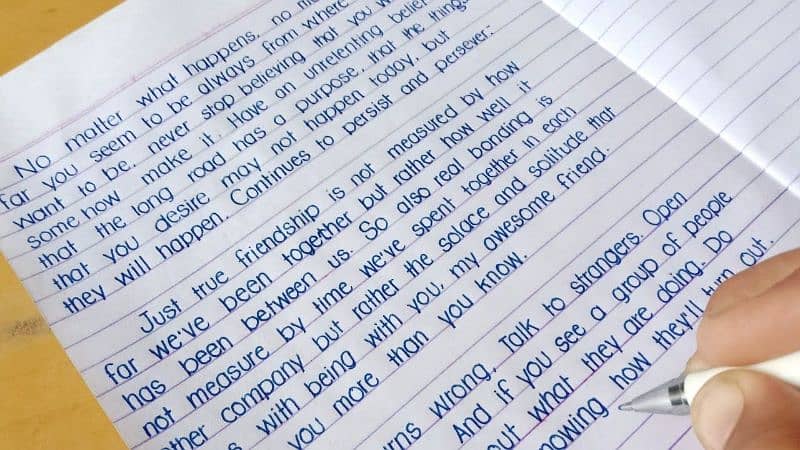 No matter what happens, no
far you seem to be always from where
want to be, never stop believing that you
somehow make it. Have an unrelenting belief
that the long road has a purpose, that the things
that you desire may not happen today, but
they will happen. Continues to persist and persever.
Just true friendship is not measured by how
far we've been together but rather how well it
has been between us. So also real bonding is
not measure by time we've spent together in each
other company but rather the solace and solitude that
with being with you, my awesome friend.
you more than you know.
wrong. Talk to strangers. Open
And if you see a group of people
what they are doing. Do
how they'll turn out.